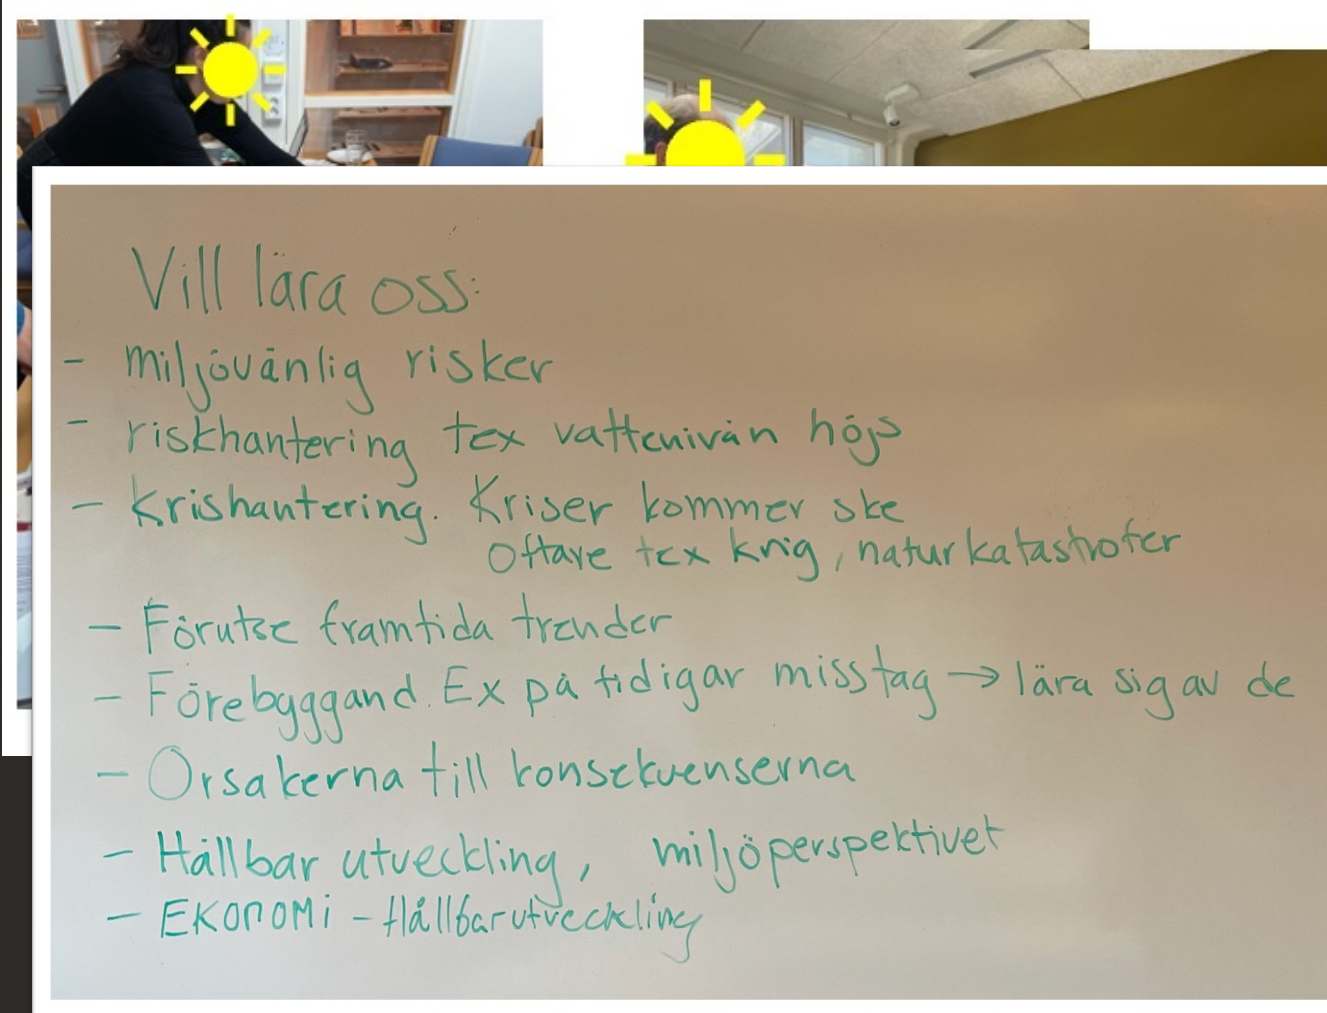 Vill lära oss:
- miljövänlig risker
- riskhantering tex vattenivån höjs
- Krishantering. Kriser kommer ske
oftare tex krig, naturkatastrofer
- Förutse framtida trender
- Förebyggand. Ex på tidigar misstag → lära sig av de
- Orsakerna till konsekvenserna
- Hållbar utveckling, miljöperspektivet
- EKONOMi - Hållbarutveckling